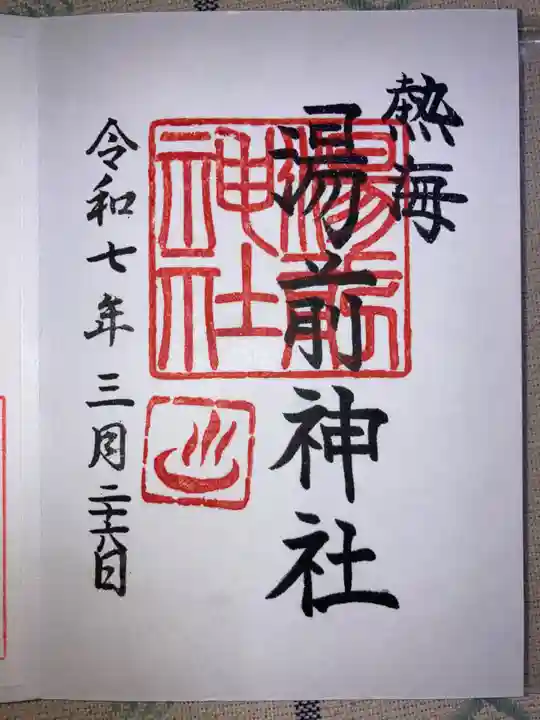 熱海
湯前神社
湯前神社
令和七年三月二十六日